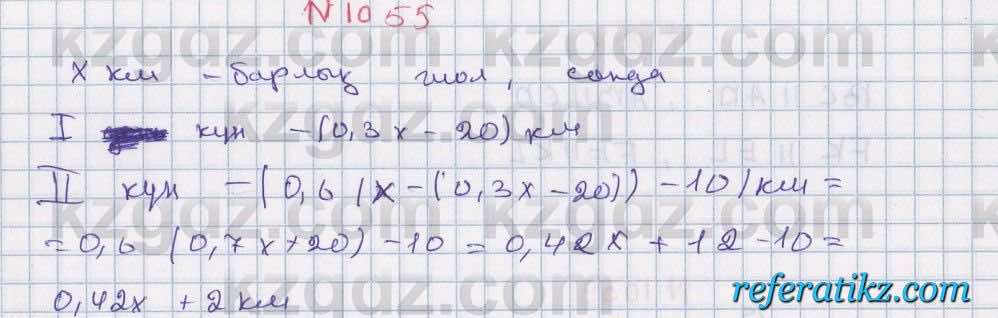 N 1055
kzgdz.com kzgdz.com
х км – барлық жол, сонда
I күн – (0,3х – 20) км
II күн – (0,6 (х – (0,3х – 20)) – 10) км =
= 0,6 (0,7х + 20) – 10 = 0,42х + 12 – 10 =
0,42х + 2 км
referatikz.com